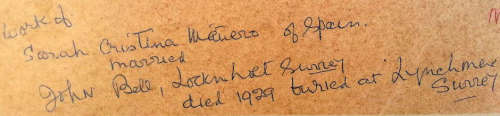 Work of
Sarah Cristina Matiero of Spain.
married
John Bell, Locknholt Surrey
died 1929 buried at Lynchmere
Surrey